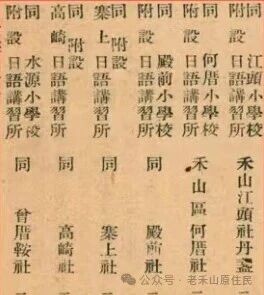 同 江頭小學校
附設日語講習所
禾山江頭社丹盞
二
同 何厝小學校
附設日語講習所
禾山區何厝社
二
同 殿前小學校
附設日語講習所
同 殿前社
一
同 附設
寨上日語講習所
同 寨上社
一
同 附設
高崎日語講習所
同 高崎社
一
同 水源小學校
附設日語講習所
同 曾厝鞍社
二
公众号·老禾山原住民